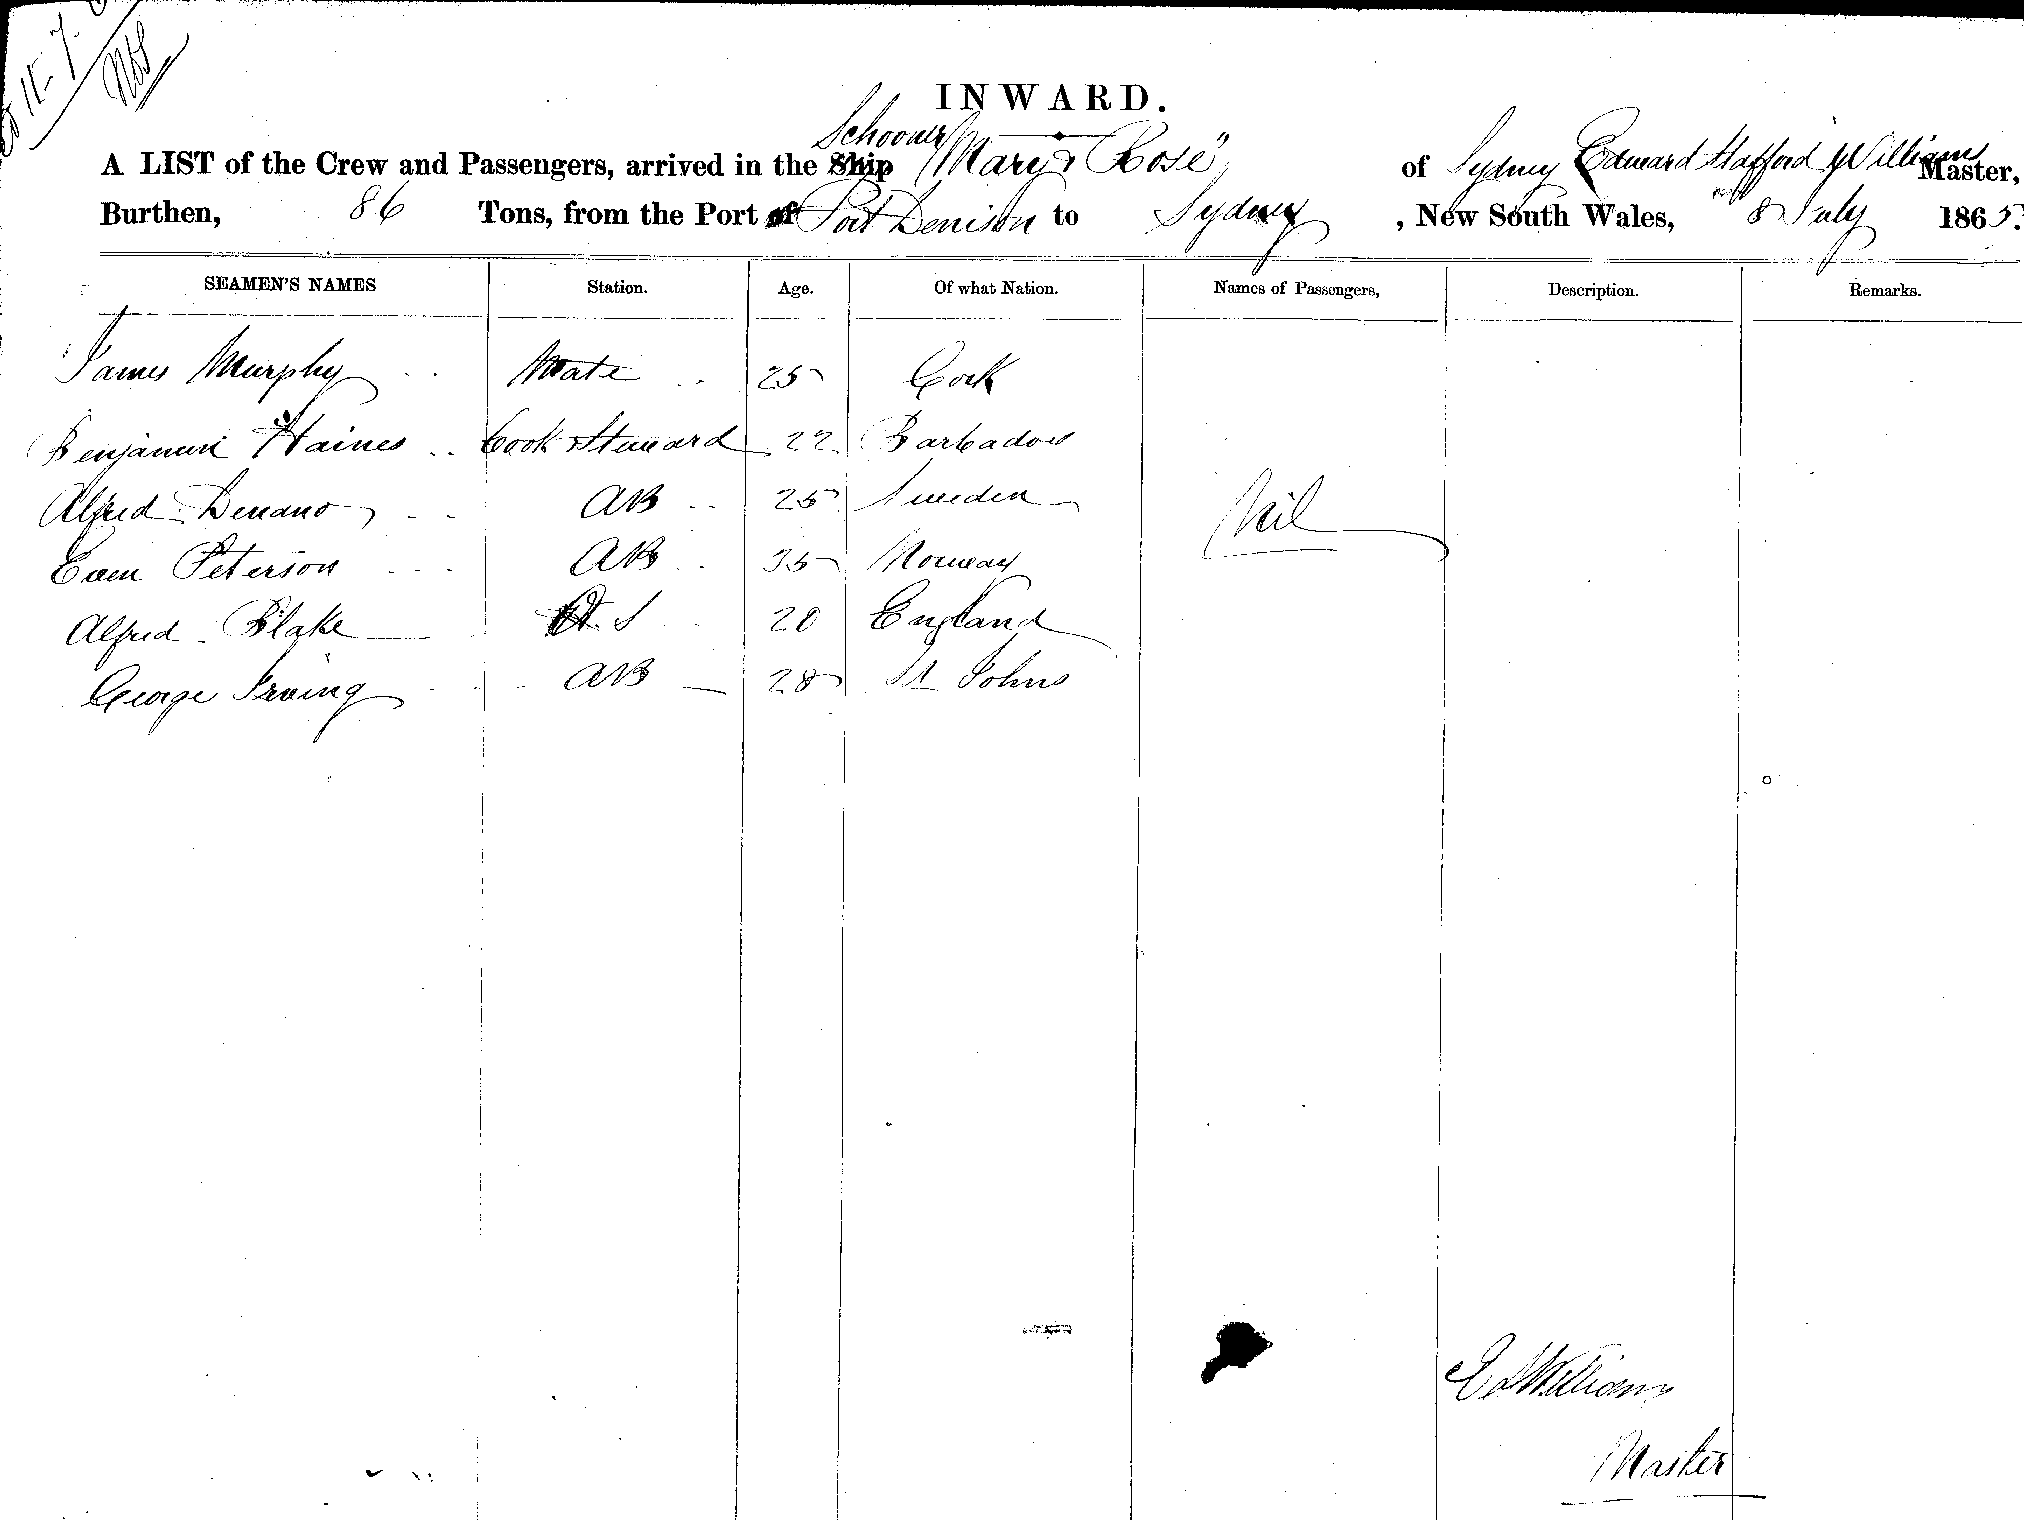 INWARD.
A LIST of the Crew and Passengers, arrived in the Ship Schooner "Mary & Rose" of Sydney Edward Stafford Williams Master,
Burthen, 86 Tons, from the Port of Port Denison to Sydney, New South Wales, 8 July 1865.
SEAMEN'S NAMES Station. Age. Of what Nation. Names of Passengers, Description. Remarks.
James Murphy Mate 25 Cork
Benjamin Haines Cook & Steward 22 Barbadoes
Alfred AB 25 Sweden
Nil
Even Peterson AB 35 Norway
Alfred Blake S 20 England
George Irving AB 28 St Johns
Ed Williams
Master